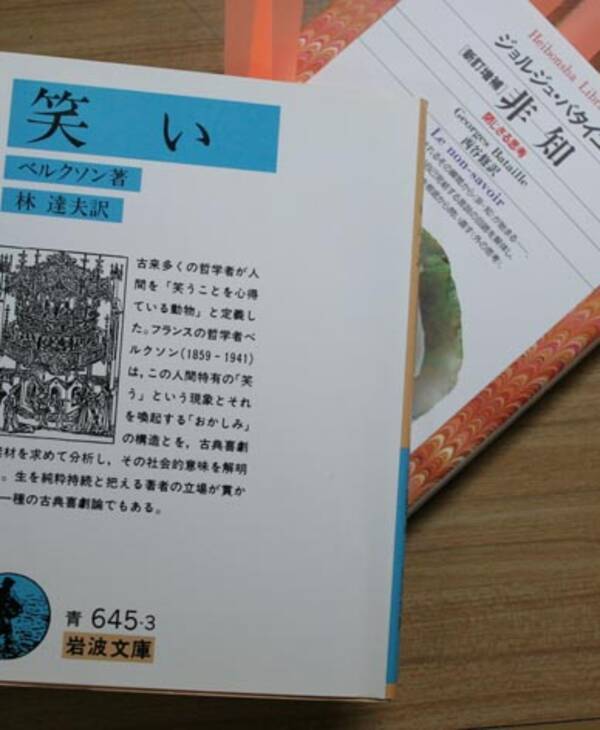 笑い
ベルクソン著
林 達夫訳
古来多くの哲学者が人
間を「笑うことを心得
ている動物」と定義し
た。フランスの哲学者ベ
ルクソン(1859-1941)
は，この人間特有の「笑
う」という現象とそれ
を喚起する「おかしみ」
の構造とを，古典喜劇
材を求めて分析し，その社会的意味を解明
。生を純粋持続と把える著者の立場が貫か
一種の古典喜劇論でもある。
青 645-3
岩波文庫
Heibonsha Libra
ジョルジュ・バタイ
[新訂増補]
非知
閉じざる思考
Georges Bataille
西谷修訳
Le non-savoir